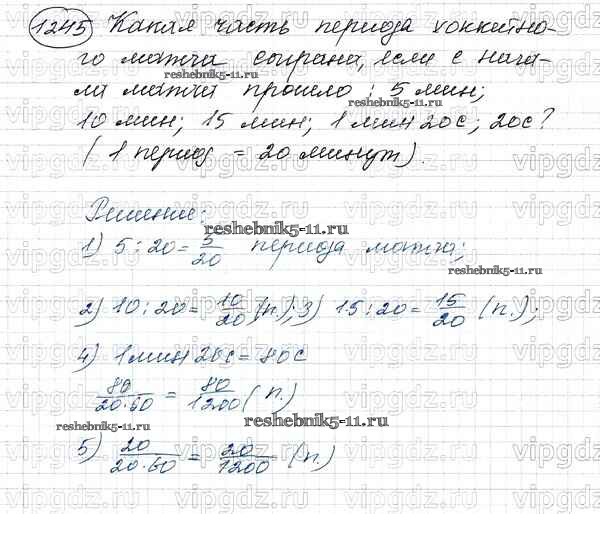 1245 Какая часть периода хоккейно-
го матча сыграна, если с нача-
ла матча прошло: 5 мин;
10 мин; 15 мин; 1 мин 20с; 20с?
(1 период = 20 минут).
Решение:
1) 5:20 = 5/20 периода матча;
2) 10:20 = 10/20 (п.); 3) 15:20 = 15/20 (п.);
4) 1 мин 20с = 80с
80/20·60 = 80/1200 (п.)
5) 20/20·60 = 20/1200 (п.)
reshebnik5-11.ru
reshebnik5-11.ru
reshebnik5-11.ru
reshebnik5-11.ru
reshebnik5-11.ru
reshebnik5-11.ru
vipgdz.ru